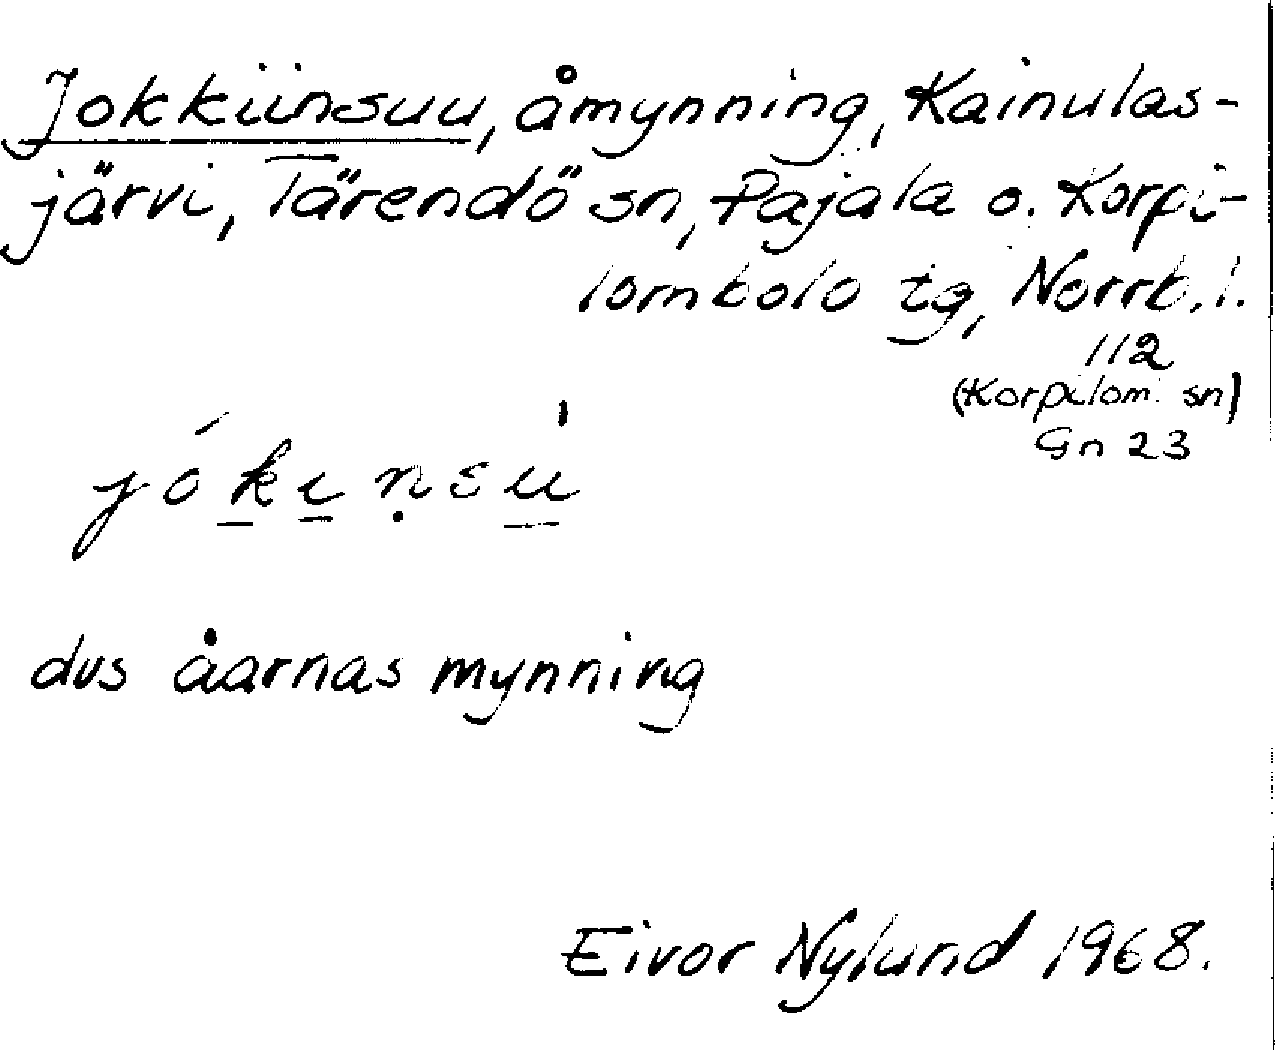 Jokkiinsuu, åmynning, Kainulas-
järvi, Tärendö sn, Pajala o. Korpi-
lombolo tg, Norrb. l.
112
(Korpilom. sn)
Gn 23
dvs åarnas mynning
Eivor Nylund 1968.